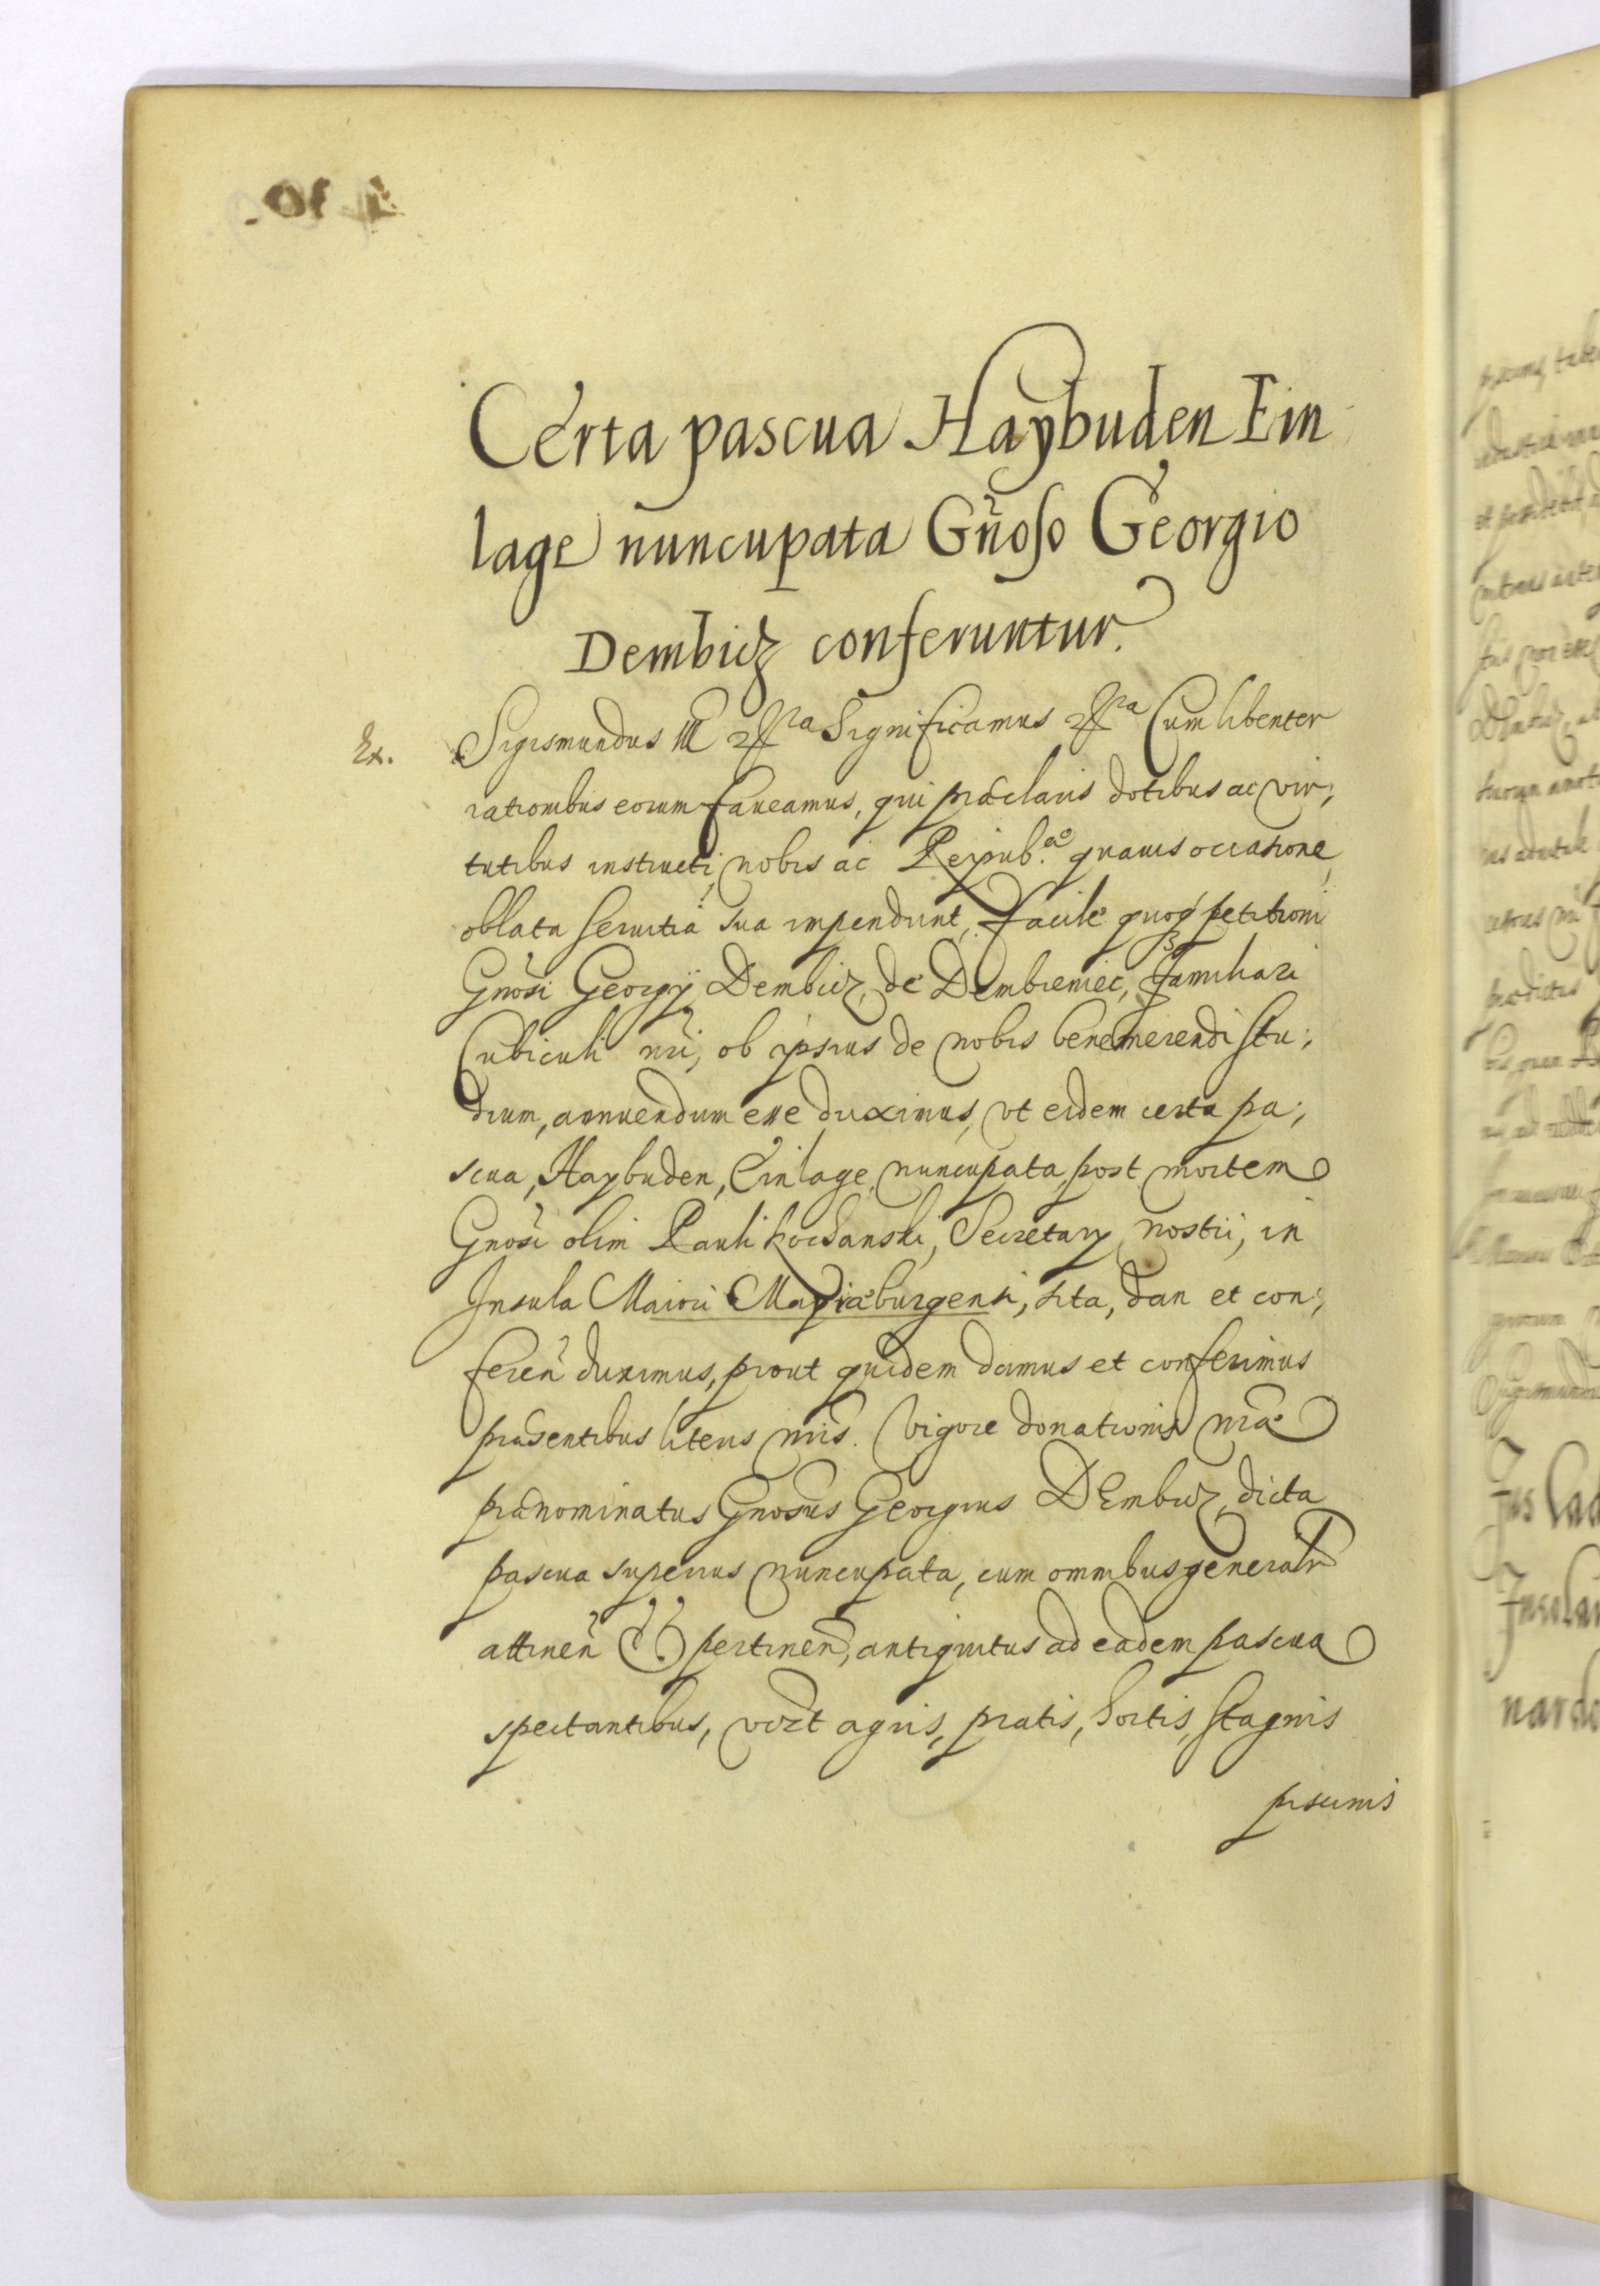 Certa pascua Haybuden Ein
lage nuncupata Gñoso Georgio
Dembicz conferuntur.
Ex.
Sigismundus III etc̃ra Significamus etc̃ra Cum libenter
rationibus eorum faueamus, qui præclaris dotibus ac vir,
tutibus instructi, nobis ac Reipub.ae quauis occasione
oblata seruitia sua impendunt, facile quoq petitioni
Gnosi Georgij Dembicz, de Dembieniec, Familiari
Cubiculi nri, ob ipsius de nobis benemerendi stu,
dium, annuendum esse duximus, vt eidem certa pa,
scua, Haybuden, Einlage nuncupata, post mortem
Gnosi olim Pauli Kochanski, Secretarij nostri, in
Insula Maiori Mariæburgensi, sita, dan et con,
feren duximus, prout quidem damus et conferimus
præsentibus literis nris. Vigore donationis nræ
prænominatus Gnosus Georgius Dembicz, dicta
pascua superius nuncupata, cum omnibus generalr
attinen et pertinen, antiquitus ad eadem pascua
spectantibus, vizt agris, pratis, hortis, stagnis
piscinis